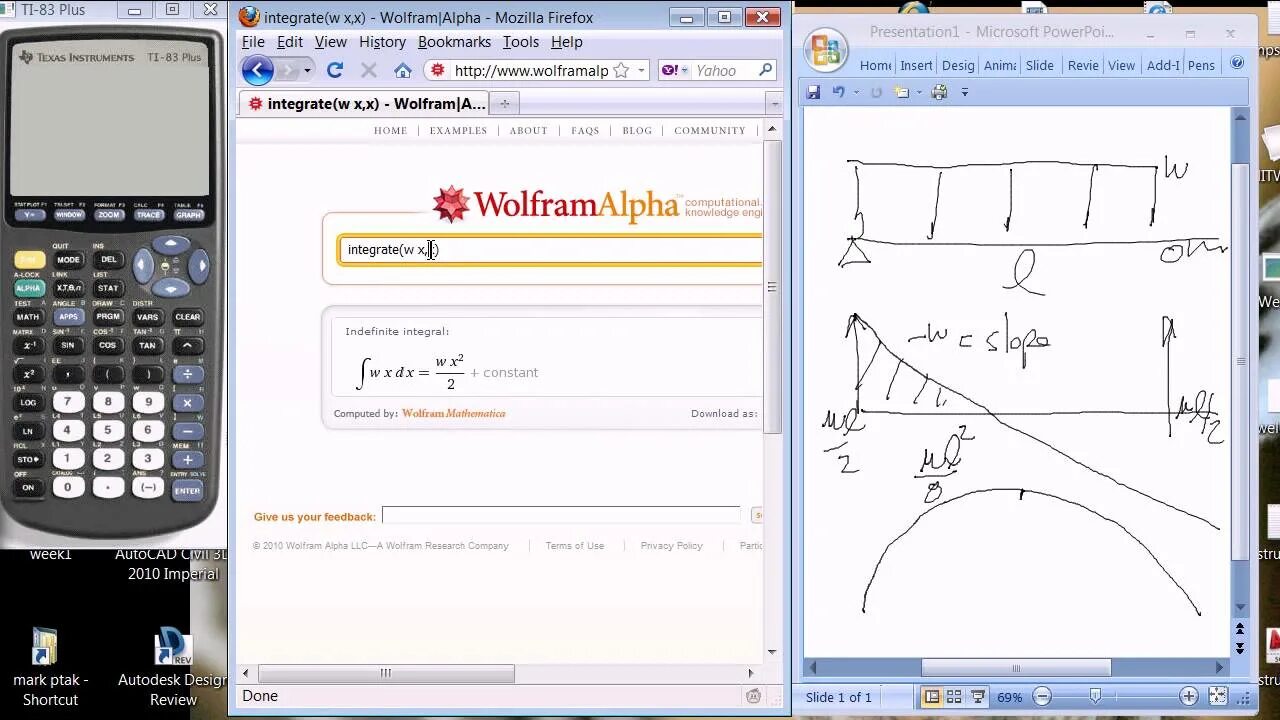 TI-83 Plus
TEXAS INSTRUMENTS TI-83 Plus
STAT PLOT F1 TBLSET F2 FORMAT F3 CALC F4 TABLE F5
Y= WINDOW ZOOM TRACE GRAPH
QUIT INS
MODE DEL
A-LOCK LINK LIST
ALPHA X,T,θ,n STAT
TEST A ANGLE B DRAW C DISTR
MATH APPS PRGM VARS CLEAR
x⁻¹ SIN COS TAN ^
x² , ( ) ÷
LOG 7 8 9 ×
LN 4 5 6 −
RCL MEM
STO 1 2 3 +
OFF CATALOG ANS ENTRY SOLVE
ON 0 . (−) ENTER
week1
AutoCAD Civil 3D
2010 Imperial
mark ptak -
Shortcut
Autodesk Design
Review
integrate(w x,x) - Wolfram|Alpha - Mozilla Firefox
File Edit View History Bookmarks Tools Help
http://www.wolframalp
Yahoo
integrate(w x,x) - Wolfram|A...
HOME | EXAMPLES | ABOUT | FAQS | BLOG | COMMUNITY
WolframAlpha™ computational
knowledge engi
integrate(w x,x)
Indefinite integral:
∫w x dx = w x²/2 + constant
Computed by: Wolfram Mathematica
Download as:
Give us your feedback:
© 2010 Wolfram Alpha LLC—A Wolfram Research Company | Terms of Use | Privacy Policy |
Done
Presentation1 - Microsoft PowerPoi...
Home Insert Desig Anima Slide Revie View Add-I Pens
w
l
-w = slope
wl/2
wl/2
wl²/8
Slide 1 of 1
69%